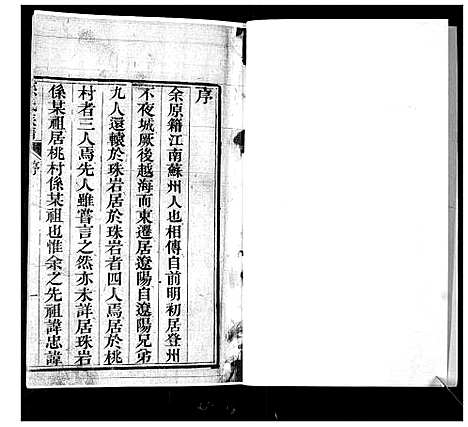 序
余原籍江南蘇州人也相傳自前明初居登州
不夜城厥後越海而東遷居遼陽自遼陽兄弟
九人還轅於珠岩居於珠岩者四人焉居於桃
村者三人焉先人雖嘗言之然亦未詳居珠岩
係某祖居桃村係某祖也惟余之先祖諱忠諱
序